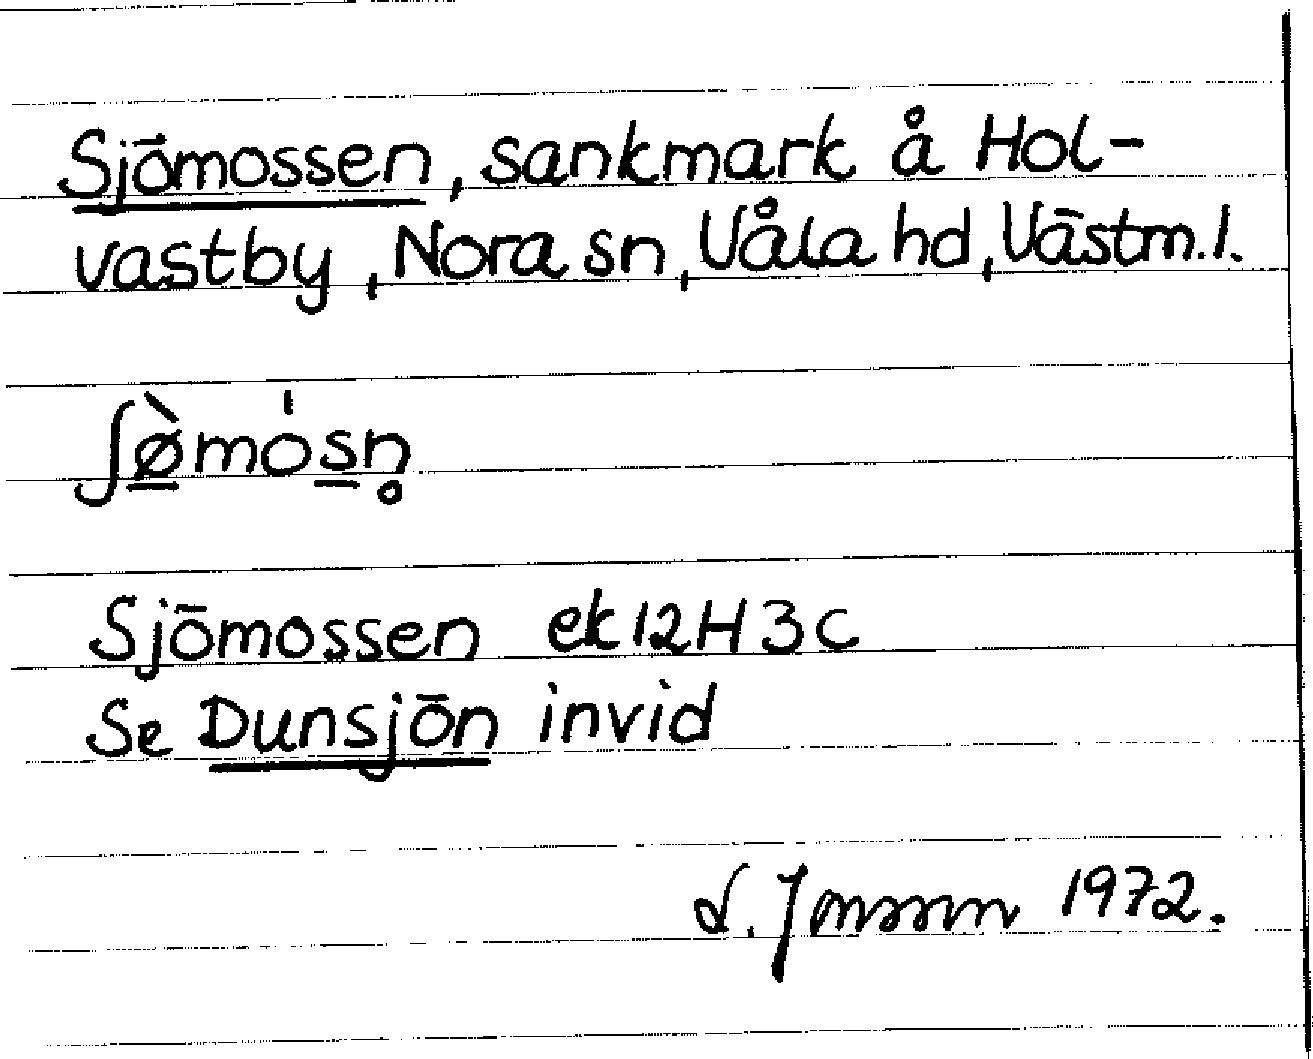 Sjömossen, sankmark å Hol-
vastby, Nora sn, Våla hd, Västm. l.
ʃø̲̀mós̲n̥
Sjömossen ek 12H3c
Se Dunsjön invid
L. Jonsson 1972.